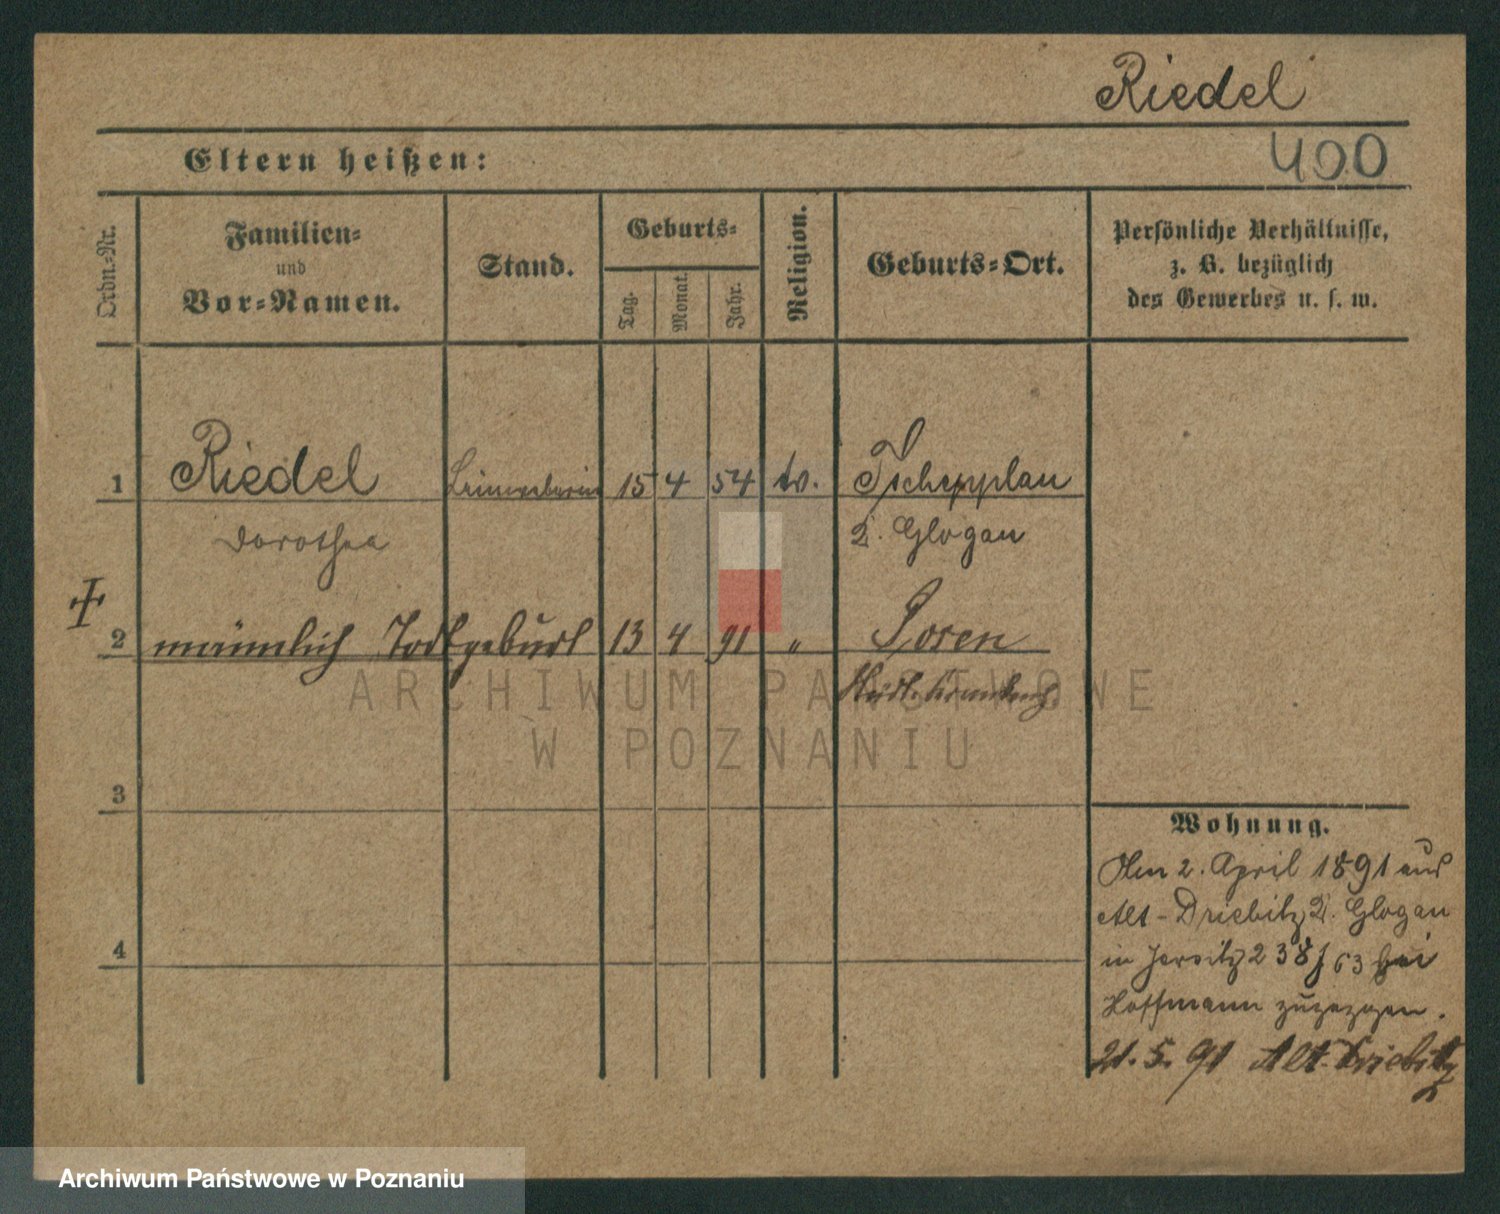 Riedel
400
Eltern heißen:
Ordn.-Nr.
Familien-
und
Vor-Namen.
Stand.
Geburts-
Tag.
Monat.
Jahr.
Religion.
Geburts-Ort.
Persönliche Verhältnisse,
z. B. bezüglich
des Gewerbes u. s. w.
1 Riedel 15 4 54 ev. Tschepplau
Dorothea K. Glogau
2 männlich Todtgeburt 13 4 91 " Posen
3
4
Wohnung.
Am 2. April 1891 aus
Alt-Driebitz K. Glogau
in Jersitz 238 bei
Hoffmann zugezogen.
21.5.91 Alt-Driebitz
ARCHIWUM PAŃSTWOWE
W POZNANIU
Archiwum Państwowe w Poznaniu